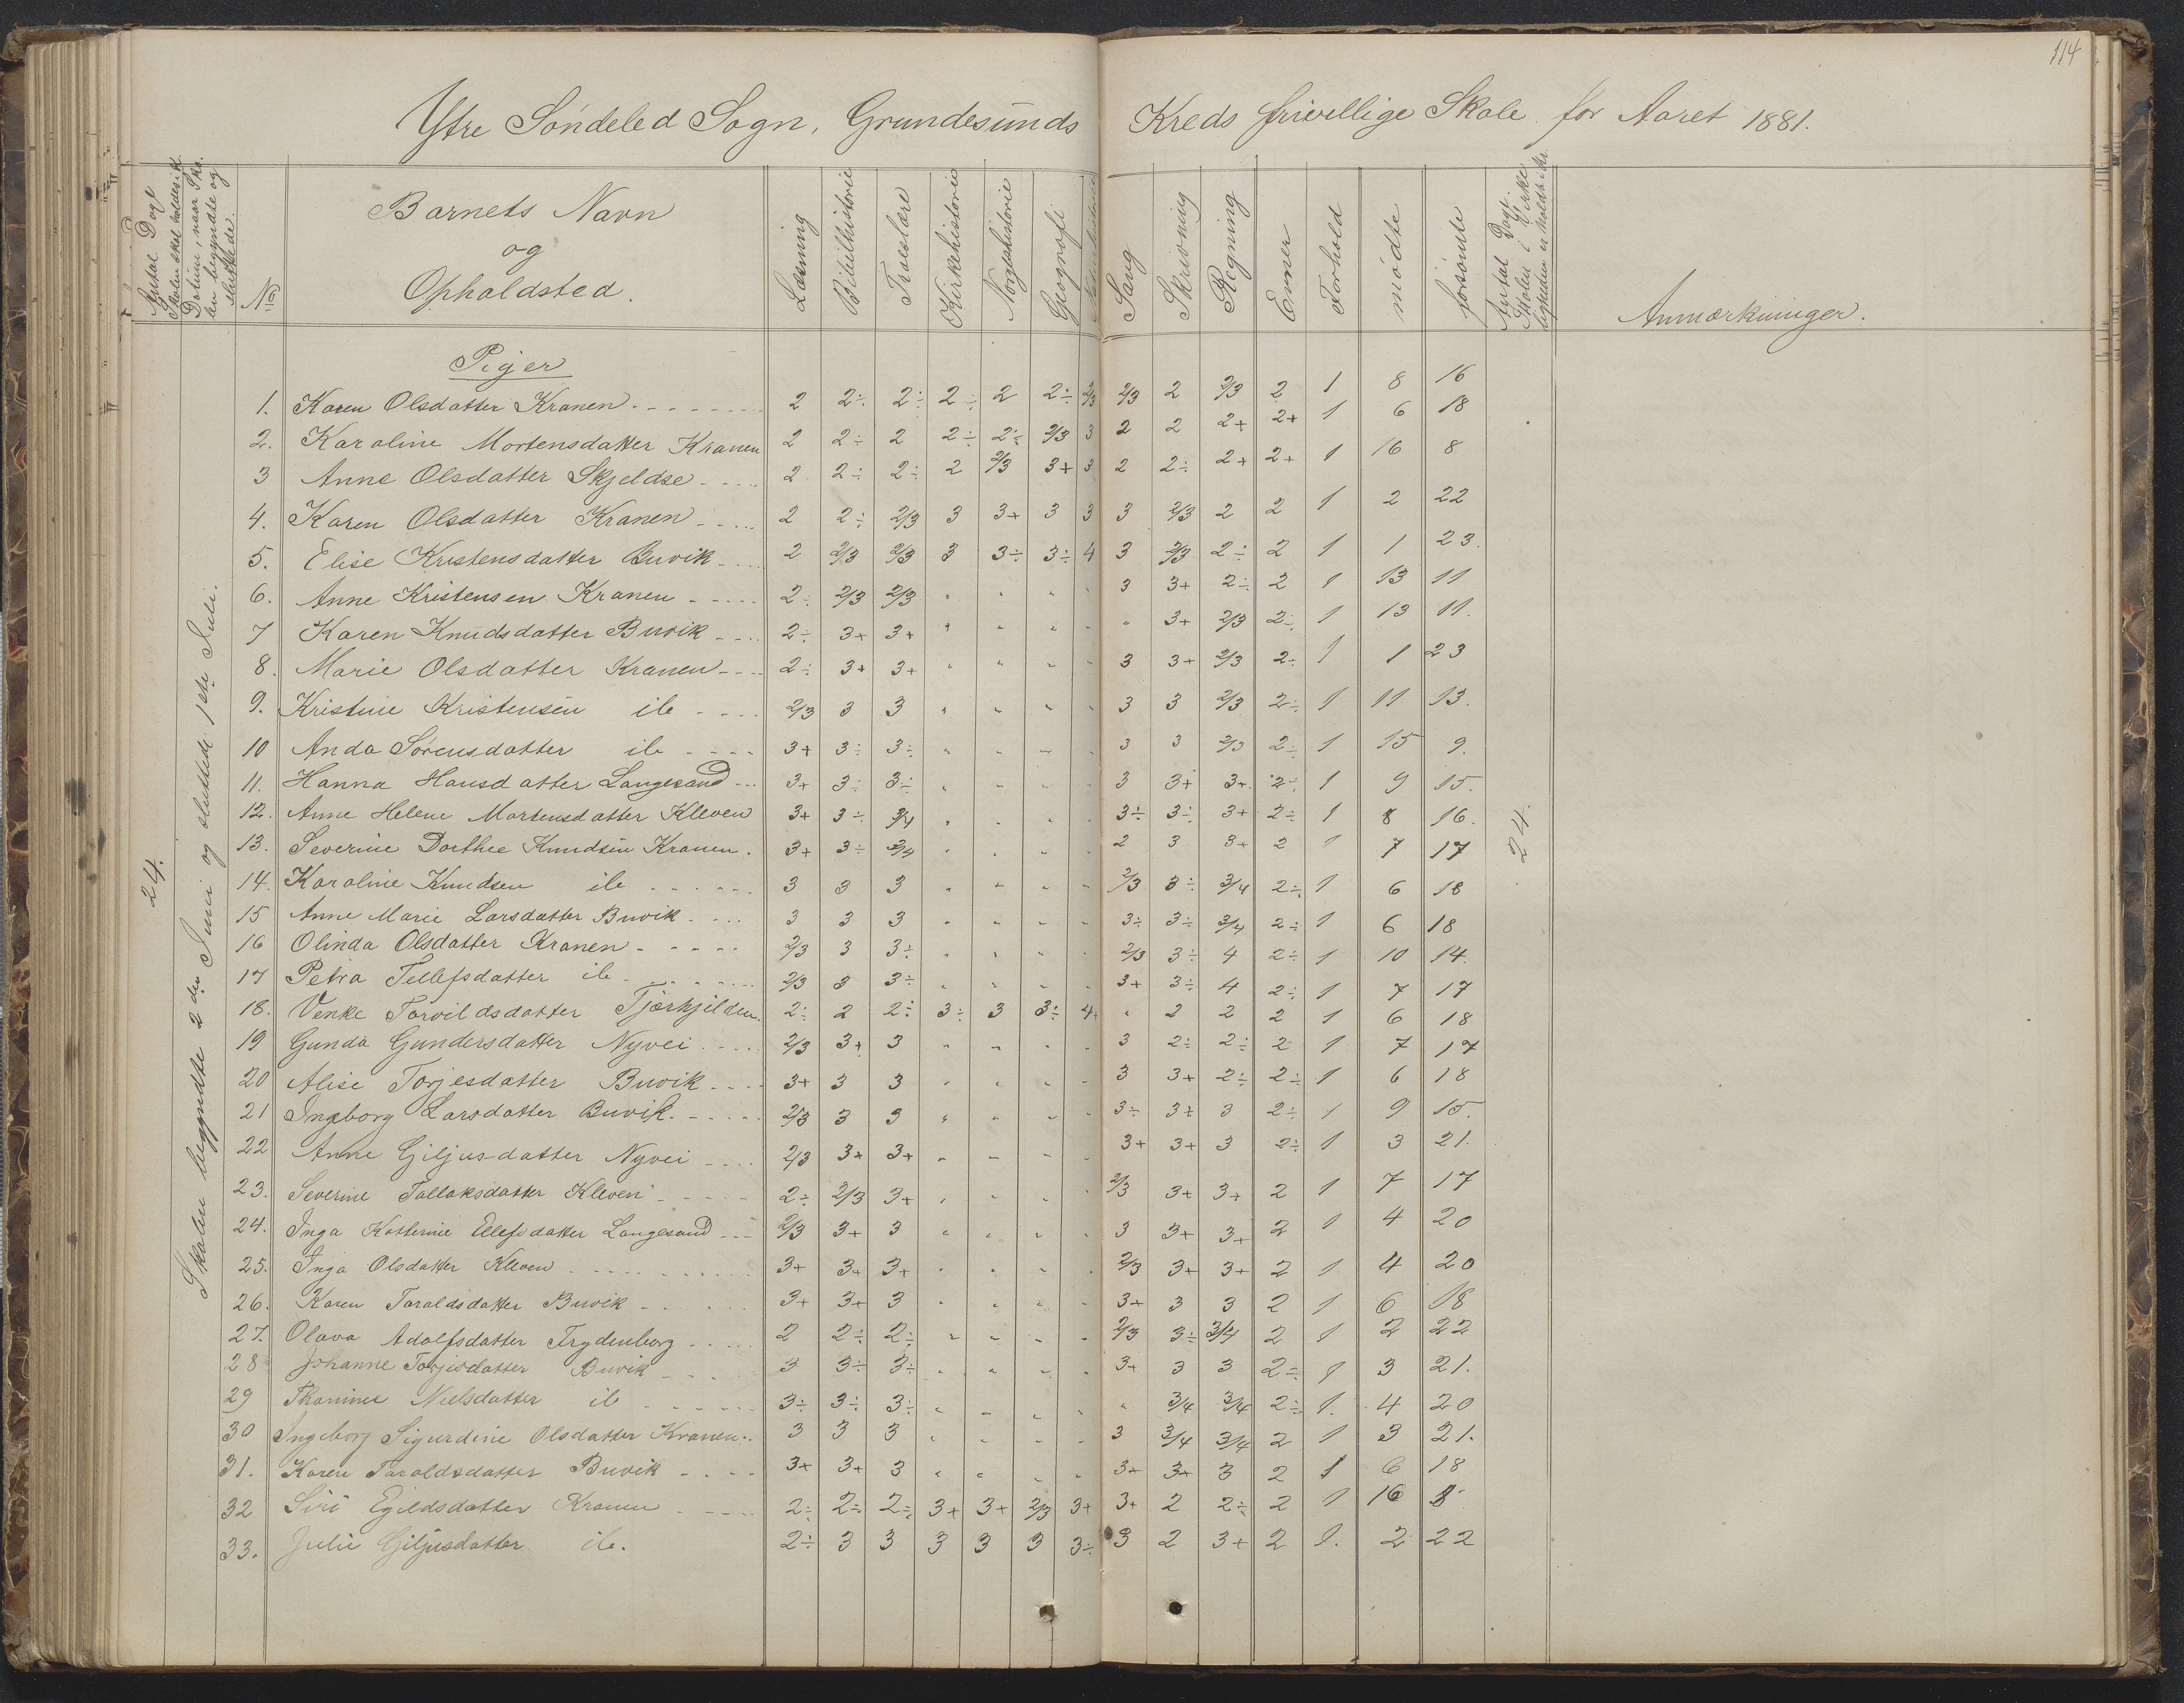 114
Ytre Søndeled Sogn, Grundesunds Kreds frivillige Skole for Aaret 1881.
Antal Dage Skolen skal holdes i K.
Datum, naar Skolen begyndte og sluttede.
No
Barnets Navn
og
Opholdsted.
Læsning
Bibelhistorie
Troeslære
Kirkehistorie
Norgeshistorie
Geografi
Sang
Skrivning
Regning
Evner
Forhold
mødte
forsømte
Antal Dage Skolen i Virkeligheden er holdt i Kr.
Anmærkninger.
24.
Skolen begyndte 2den Juni og sluttede 1ste Juli.
24.
Piger
1. Karen Olsdatter Kranen 2 2÷ 2÷ 2÷ 2 2÷ 2/3 2/3 2 2/3 2 1 8 16
2. Karoline Mortensdatter Kranen 2 2÷ 2 2÷ 2÷ 2/3 3 2 2 2+ 2+ 1 6 18
3 Anne Olsdatter Skjeldsø 2 2÷ 2÷ 2 2/3 3+ 3 2 2÷ 2+ 2+ 1 16 8
4. Karen Olsdatter Kranen 2 2÷ 2/3 3 3+ 3 3 3 2/3 2 2 1 2 22
5. Elise Kristensdatter Buvik 2 2/3 2/3 3 3÷ 3÷ 4 3 2/3 2÷ 2 1 1 23.
6. Anne Kristensen Kranen 2÷ 2/3 2/3 " " " " 3 3+ 2÷ 2 1 13 11
7 Karen Knudsdatter Buvik 2÷ 3+ 3+ " " " " " 3+ 2/3 2÷ 1 13 11.
8. Marie Olsdatter Kranen 2÷ 3+ 3+ " " " " 3 3+ 2/3 2÷ 1 1 23
9. Kristine Kristensen ib 2/3 3 3 " " " " 3 3 2/3 2÷ 1 11 13.
10 Anda Sørensdatter ib 3+ 3÷ 3÷ " " " " 3 3 2/3 2÷ 1 15 9.
11. Hanna Hansdatter Langesand 3+ 3÷ 3÷ " " " " 3 3+ 3+ 2÷ 1 9 15.
12. Anne Helene Mortensdatter Kleven 3+ 3÷ 3/4 " " " " 3÷ 3÷ 3+ 2÷ 1 8 16.
13. Severine Dorthee Knudsen Kranen. 3+ 3÷ 3/4 " " " " 2 3 3+ 2 1 7 17
14. Karoline Knudsen ib 3 3 3 " " " " 2/3 3÷ 3/4 2÷ 1 6 18
15 Anne Marie Larsdatter Buvik 3 3 3 " " " " 3÷ 3÷ 3/4 2÷ 1 6 18
16 Olinda Olsdatter Kranen 2/3 3 3÷ " " " " 2/3 3÷ 4 2÷ 1 10 14.
17 Petra Tellefsdatter ib 2/3 3 3÷ " " " " 3+ 3÷ 4 2÷ 1 7 17
18. Venke Torvildsdatter 2÷ 2 2÷ 3÷ 3 3÷ 4+ " 2 2 2 1 6 18
19 Gunda Gundersdatter Nyvei 2/3 3+ 3 " " " " 3 2÷ 2÷ 2 1 7 17
20 Alise Torjesdatter Buvik 3+ 3 3 " " " " 3 3+ 2÷ 2÷ 1 6 18
21 Ingeborg Larsdatter Buvik 2/3 3 3 " " " " 3÷ 3+ 3 2÷ 1 9 15.
22 Anne Giljusdatter Nyvei 2/3 3+ 3+ " " " " 3+ 3+ 3 2÷ 1 3 21.
23. Severine Tallaksdatter Kleven 2÷ 2/3 3+ " " " " 2/3 3+ 3+ 2 1 7 17
24. Inga Katterine Ellefsdatter Langesand 2/3 3+ 3 " " " " 3 3+ 3+ 2 1 4 20
25. Inga Olsdatter Kleven 3+ 3+ 3+ " " " " 2/3 3+ 3+ 2 1 4 20
26. Karen Taraldsdatter Buvik 3+ 3+ 3 " " " " 3+ 3 3 2 1 6 18
27. Olava Adolfsdatter Frydenborg 2 2÷ 2÷ " " " " 2/3 3÷ 3/4 2 1 2 22
28 Johanne Torjesdatter Buvik 3 3÷ 3÷ " " " " 3+ 3 3 2÷ 1 3 21.
29 Thomine Nielsdatter ib 3÷ 3÷ 3÷ " " " " " 3/4 3/4 2÷ 1. 4 20
30 Ingeborg Sigurdine Olsdatter Kranen 3 3 3 " " " " 3 3/4 3/4 2 1 3 21.
31. Karen Taraldsdatter Buvik 3+ 3+ 3 " " " " 3+ 3+ 3 2 1 6 18
32 Siri Egildsdatter Kranen 2÷ 2÷ 2÷ 3+ 3+ 2/3 3+ 3+ 2 2÷ 2 1 16 8
33. Julie Giljusdatter ib. 2÷ 3 3 3 3 3 3÷ 3 2 3+ 2 1. 2 22